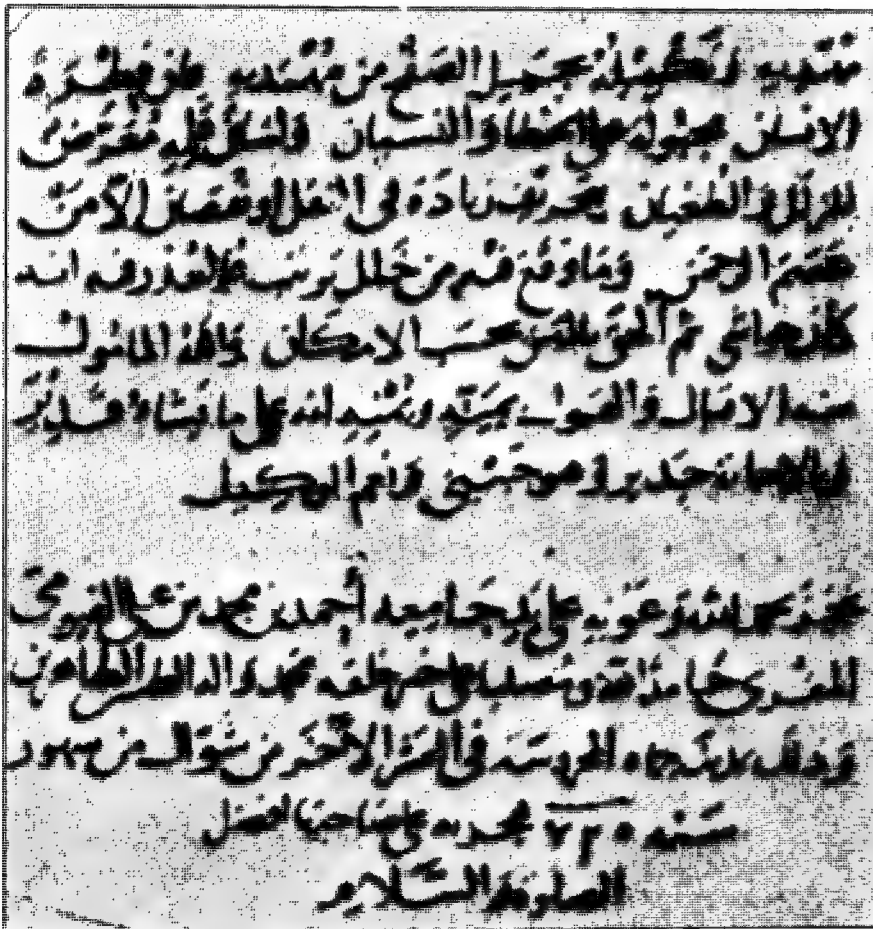 منتديه لتكميله بجميل الصفح من مهتديه فان فطرة
الانسان مجبولة على الخطأ والنسيان ولسان قلمه معترض
للزلل والطغيان بتحريف زيادة في النقل او نقصان الا من
عصم الرحمن وما وقع فيه من خلل يريب فالعذر فيه انه
كان حواشي ثم الحق بالمتن بحسب الامكان والله المامول
منه الاقبال والقبول بمنه ويمنه انه على ما يشاء قدير
وبالاجابة جدير وهو حسبي ونعم الوكيل
نجز بحمد الله وعونه على يد جامعه أحمد بن محمد بن علي الفيومي
المقرئ حامدا لله ومصليا على خير خلقه محمد واله الطيبين الطاهرين
وذلك بمدينة حماه المحروسة في العشر الاخر من شوال من شهور
سنه ٧٢٥ هجريه على صاحبها افضل
الصلوة والسلام